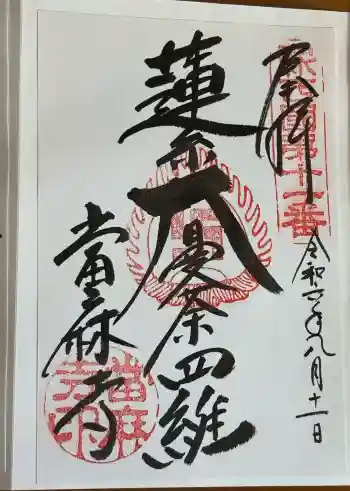 奉拝
新西國第十一番
令和六年九月十一日
蓮糸大曼荼羅
當麻寺